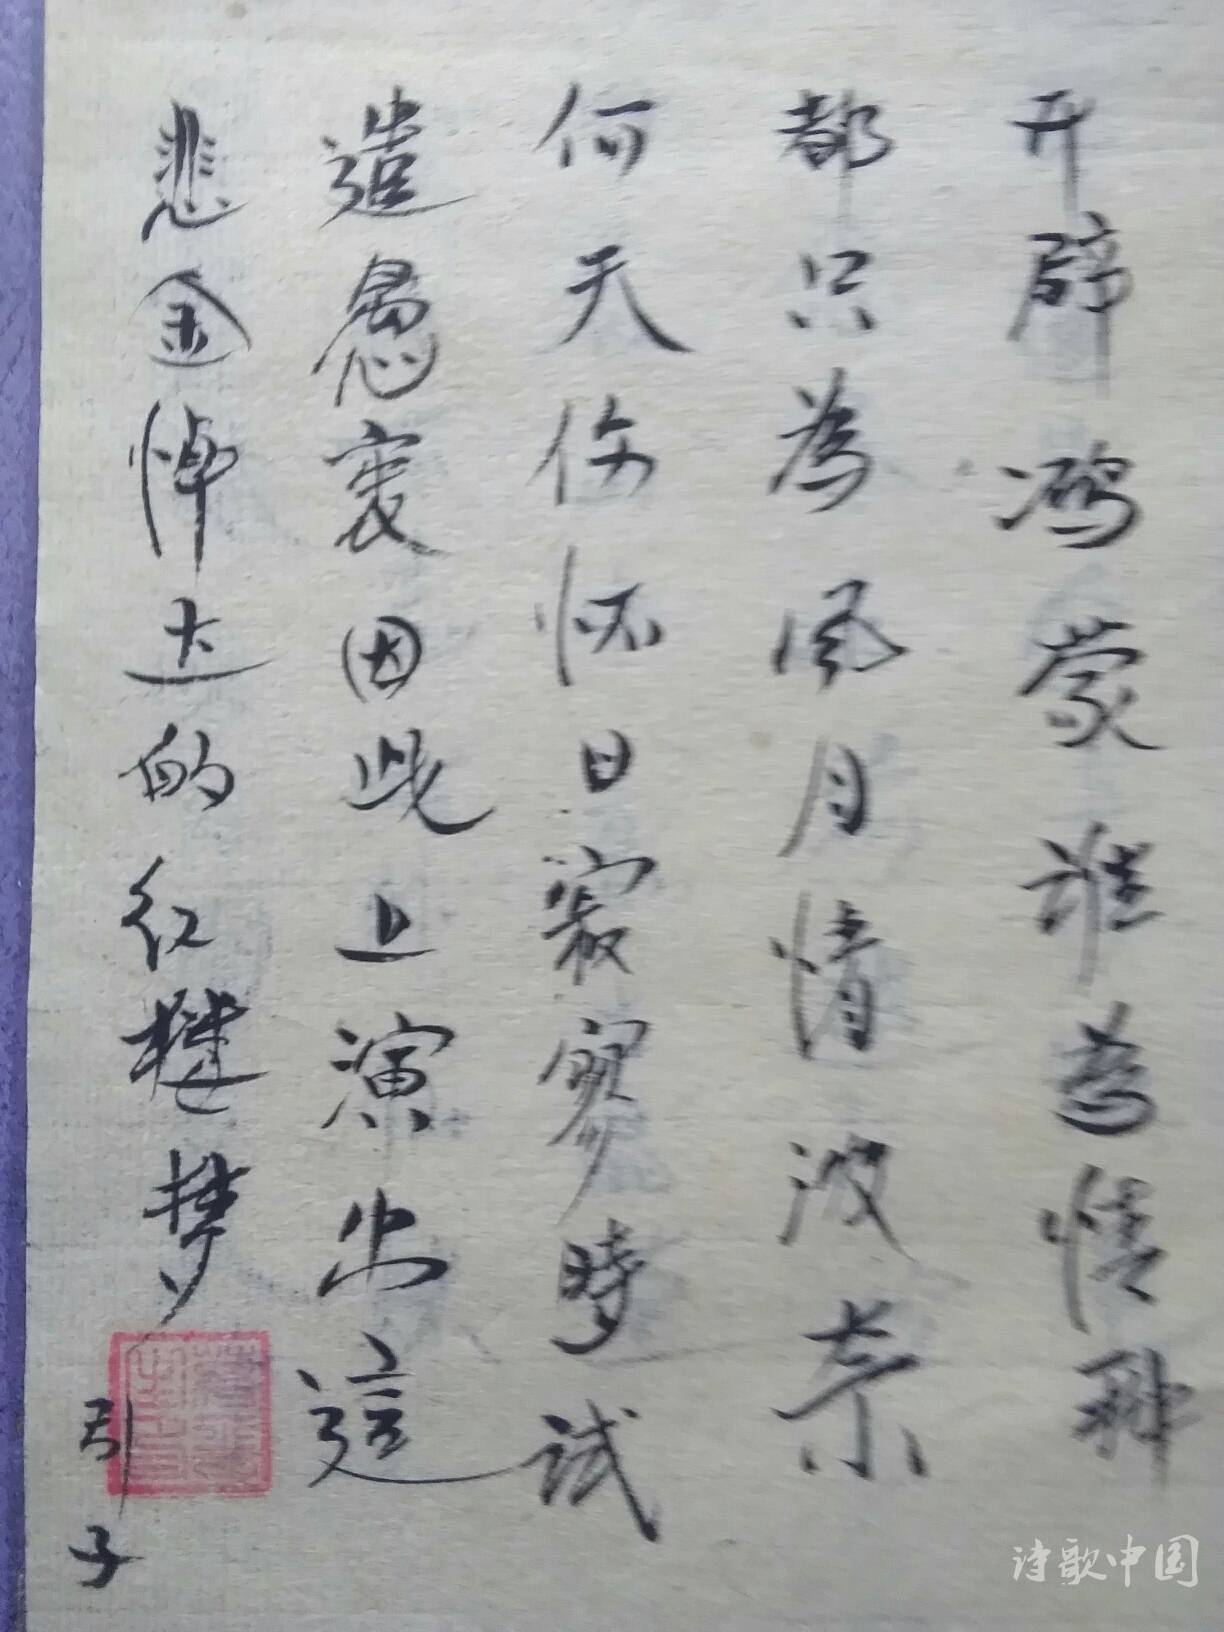 开辟鸿蒙谁為情种
都只為风月情波奈
何天伤怀日寂寥時试
遣愚衷因此上演出這
悲金悼玉的红楼梦
引子
诗歌中国